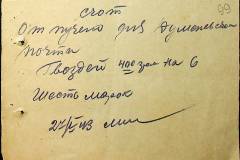 99
счот
Отпущено для Думановской
почты
Гвоздей 400 грм на 6
Шесть марок
27/I-43